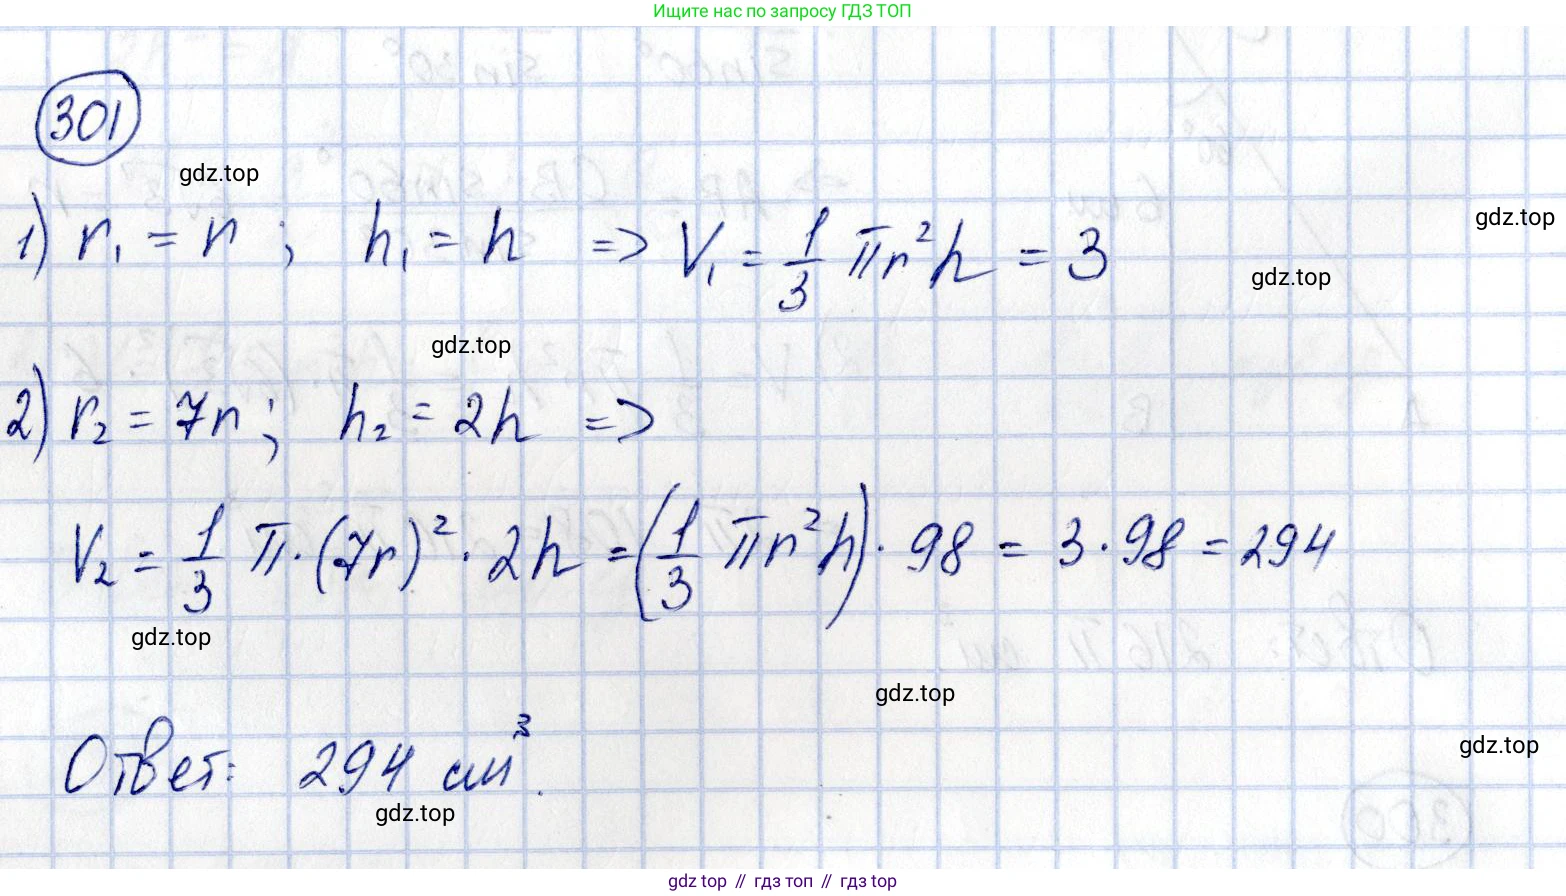 Ищите нас по запросу ГДЗ ТОП
301
gdz.top
1) r₁ = r ; h₁ = h => V₁ = 1/3 πr²h = 3
gdz.top
gdz.top
gdz.top
2) r₂ = 7r ; h₂ = 2h =>
V₂ = 1/3 π·(7r)²·2h = (1/3 πr²h)·98 = 3·98 = 294
gdz.top
gdz.top
gdz.top
Ответ: 294 см³.
gdz.top
gdz top // гдз топ // гдз top